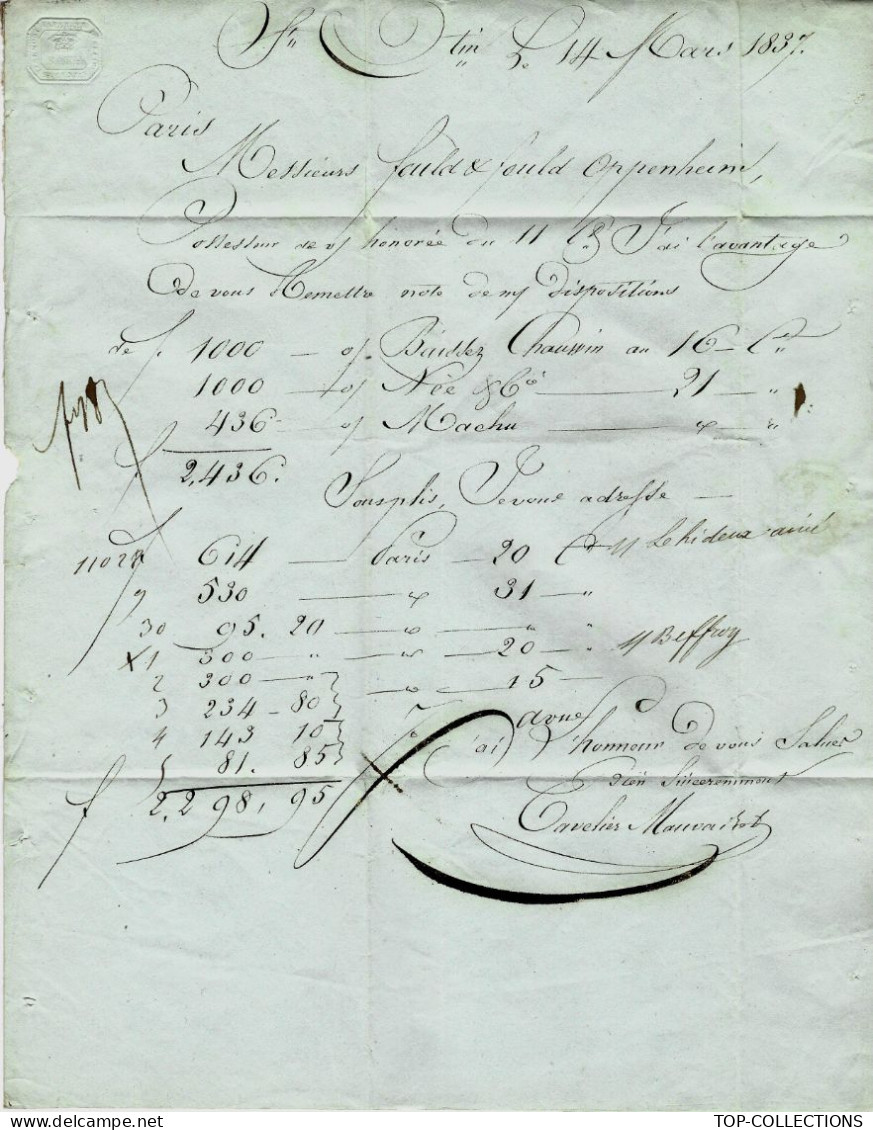 St Qtin Le 14 Mars 1837.
Paris
Messieurs fould & fould Oppenheim,
Possesseur de v/ honorée du 11 Ct J'ai l'avantage
de vous Remettre note de m/ dispositions
de f. 1000 — o/. Baissez Chauvin au 16 — Ct
1000 — o/ Née & Cie — 21 — "
436 — o/ Machu — " — "
f. 2,436.
Sousplis, Je vous adresse —
11028 614 — Paris — 20 Ct Lehideux ainé
9 530 — " — 31 — "
30 95. 20 — " — " — "
X1 300 — " — " — 20 — " Beffroy
2 300 — " — " — 15 —
3 234 — 80
4 143 10
5 81. 85
f 2,298, 95
J'ai l'honneur de vous Saluer
bien Sincerement
Cavelier
TOP-COLLECTIONS